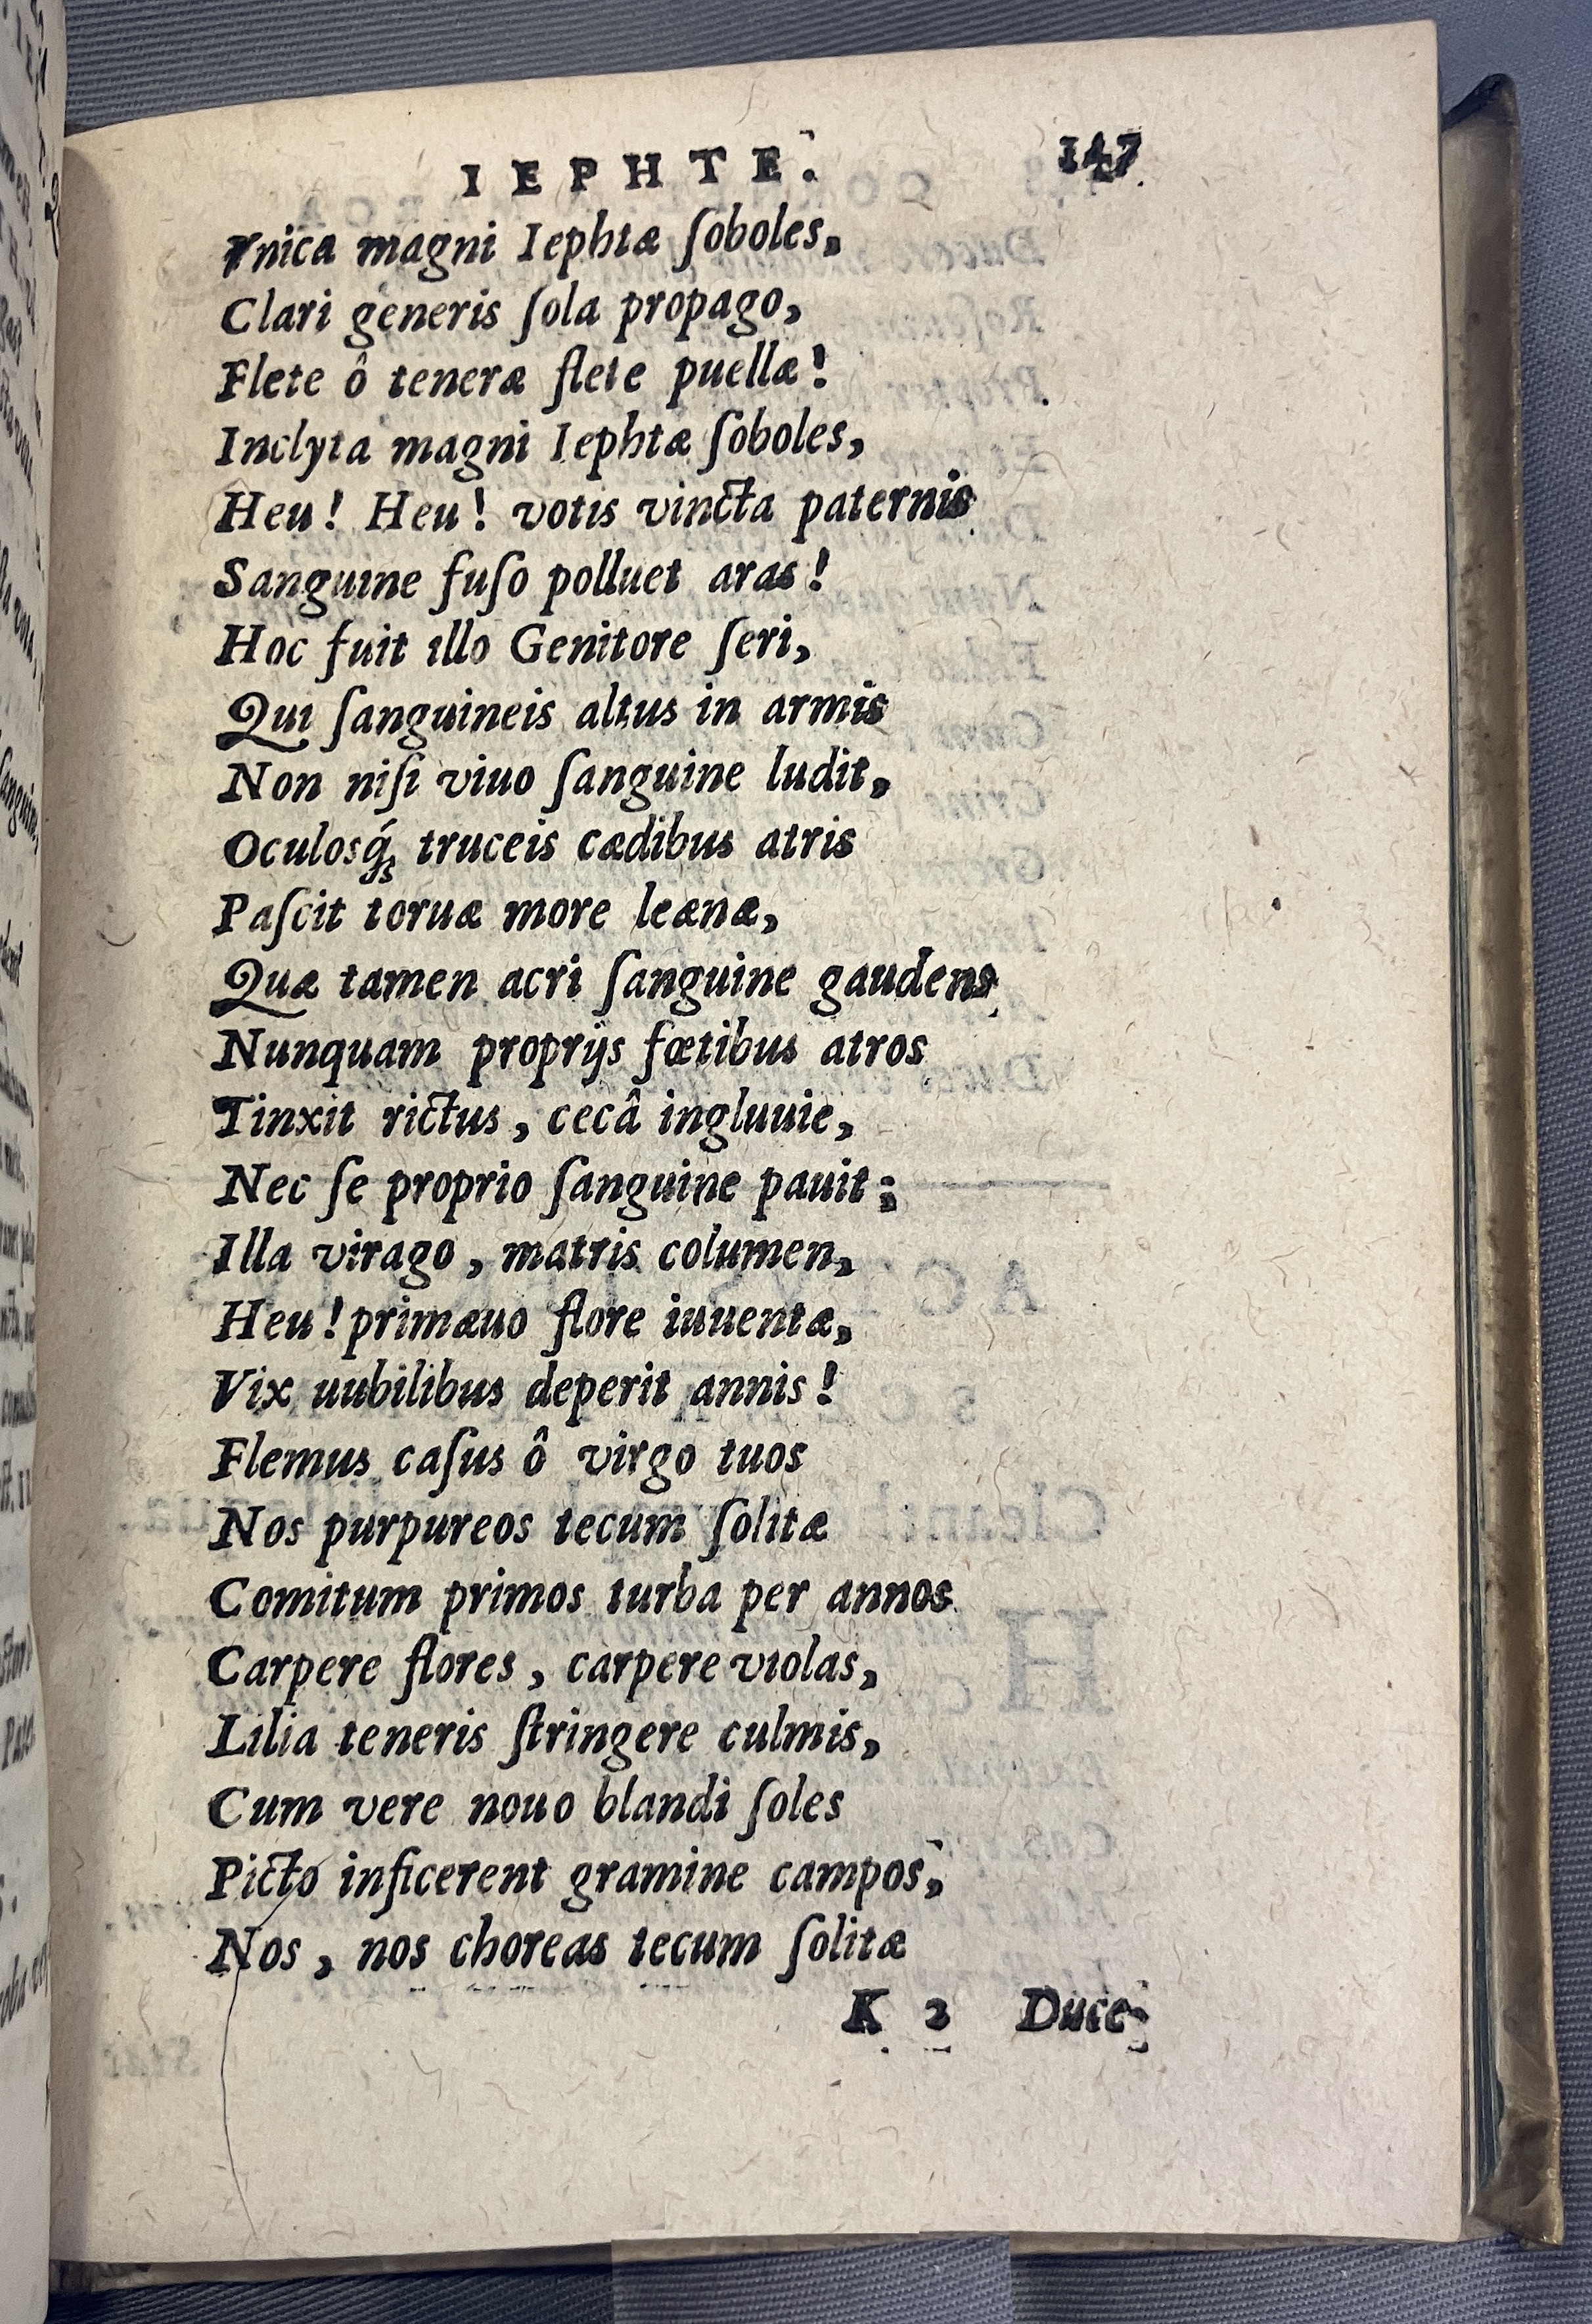 IEPHTE. 147
Vnica magni Iephtæ ſoboles,
Clari generis ſola propago,
Flete ô teneræ flete puellæ!
Inclyta magni Iephtæ ſoboles,
Heu! Heu! votis vincta paternis
Sanguine fuſo polluet aras!
Hoc fuit illo Genitore ſeri,
Qui ſanguineis altus in armis
Non niſi viuo ſanguine ludit,
Oculosq́; truceis cædibus atris
Paſcit toruæ more leænæ,
Quæ tamen acri ſanguine gaudens
Nunquam proprijs fœtibus atros
Tinxit rictus, cecâ ingluuie,
Nec ſe proprio ſanguine pauit;
Illa virago, matris columen,
Heu! primæuo flore iuuentæ,
Vix uubilibus deperit annis!
Flemus caſus ô virgo tuos
Nos purpureos tecum ſolitæ
Comitum primos turba per annos
Carpere flores, carpere violas,
Lilia teneris ſtringere culmis,
Cum vere nouo blandi ſoles
Picto inficerent gramine campos,
Nos, nos choreas tecum ſolitæ
K 2 Duce-